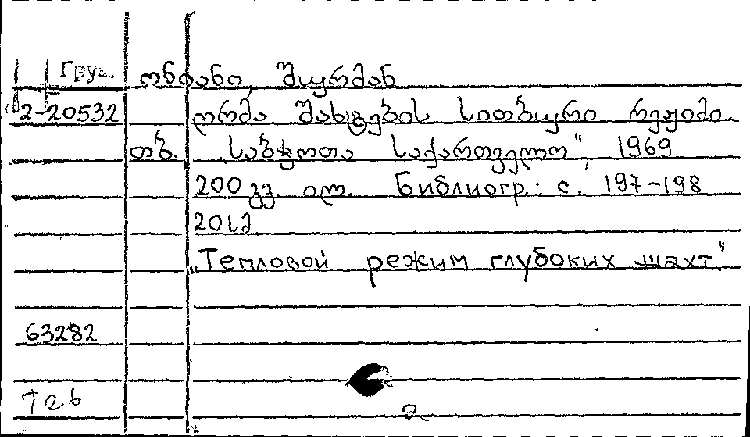 Груз. ონიანი, შურმან
2-20532 ღრმა შახტების სითბური რეჟიმი.
თბ. „საბჭოთა საქართველო", 1969
200 გვ. ილ. Библиогр.: с. 197-198
2012
„Тепловой режим глубоких шахт"
63282